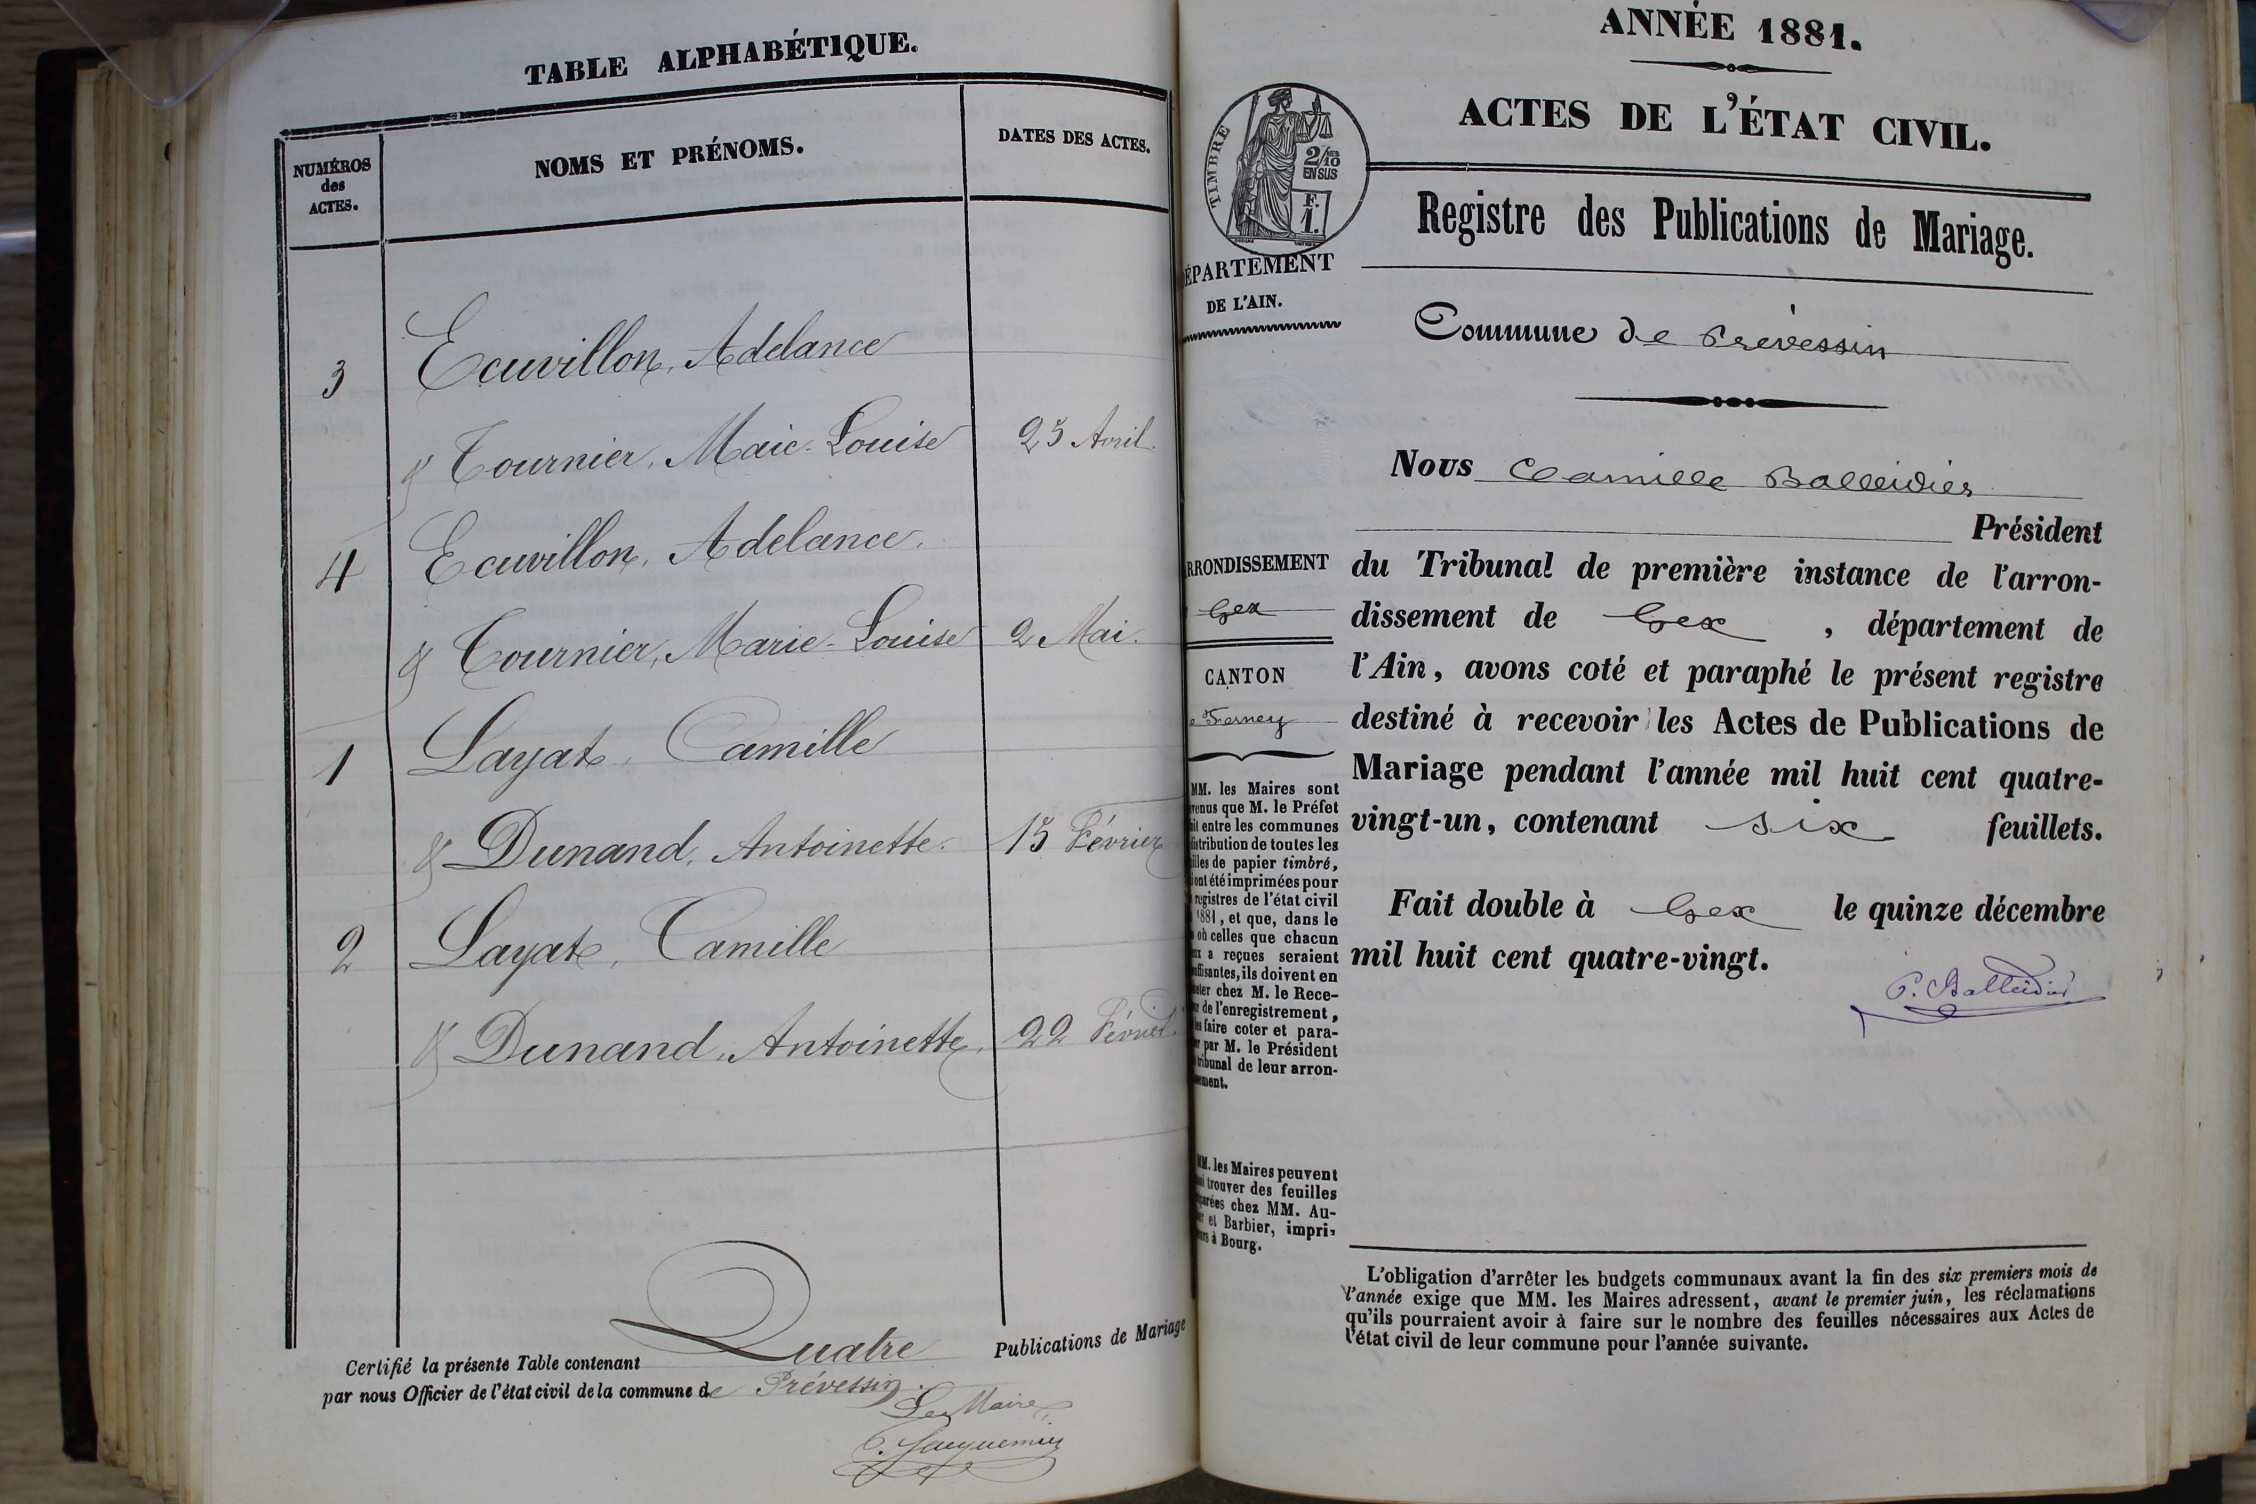 TABLE ALPHABÉTIQUE.
NUMÉROS
des
ACTES.
NOMS ET PRÉNOMS.
DATES DES ACTES.
3 Ecuvillon, Adelance
& Tournier, Maie-Louise 25 Avril.
4 Ecuvillon, Adelance.
& Tournier, Marie-Louise 2 Mai.
1 Layat, Camille
& Dunand, Antoinette. 15 Février
2 Layat, Camille
& Dunand, Antoinette, 22 Février
Certifié la présente Table contenant Quatre Publications de Mariage
par nous Officier de l'état civil de la commune de Prévessin.
Le Maire,
C. Jacquemin
ANNÉE 1881.
ACTES DE L'ÉTAT CIVIL.
TIMBRE
2/10
EN SUS
F.
1.
Registre des Publications de Mariage.
ÉPARTEMENT
DE L'AIN.
Commune de Prévessin
Nous Camille Balleidier
Président
du Tribunal de première instance de l'arron-
dissement de Gex, département de
l'Ain, avons coté et paraphé le présent registre
destiné à recevoir les Actes de Publications de
Mariage pendant l'année mil huit cent quatre-
vingt-un, contenant six feuillets.
Fait double à Gex le quinze décembre
mil huit cent quatre-vingt.
C. Balleidier
RRONDISSEMENT
Gex
CANTON
e Ferney
MM. les Maires sont
venus que M. le Préfet
it entre les communes
istribution de toutes les
illes de papier timbré,
i ont été imprimées pour
registres de l'état civil
1881, et que, dans le
où celles que chacun
ux a reçues seraient
uffisantes, ils doivent en
eter chez M. le Rece-
ur de l'enregistrement,
les faire coter et para-
er par M. le Président
tribunal de leur arron-
sement.
MM. les Maires peuvent
si trouver des feuilles
parées chez MM. Au-
er et Barbier, impri-
eurs à Bourg.
L'obligation d'arrêter les budgets communaux avant la fin des six premiers mois de
l'année exige que MM. les Maires adressent, avant le premier juin, les réclamations
qu'ils pourraient avoir à faire sur le nombre des feuilles nécessaires aux Actes de
l'état civil de leur commune pour l'année suivante.